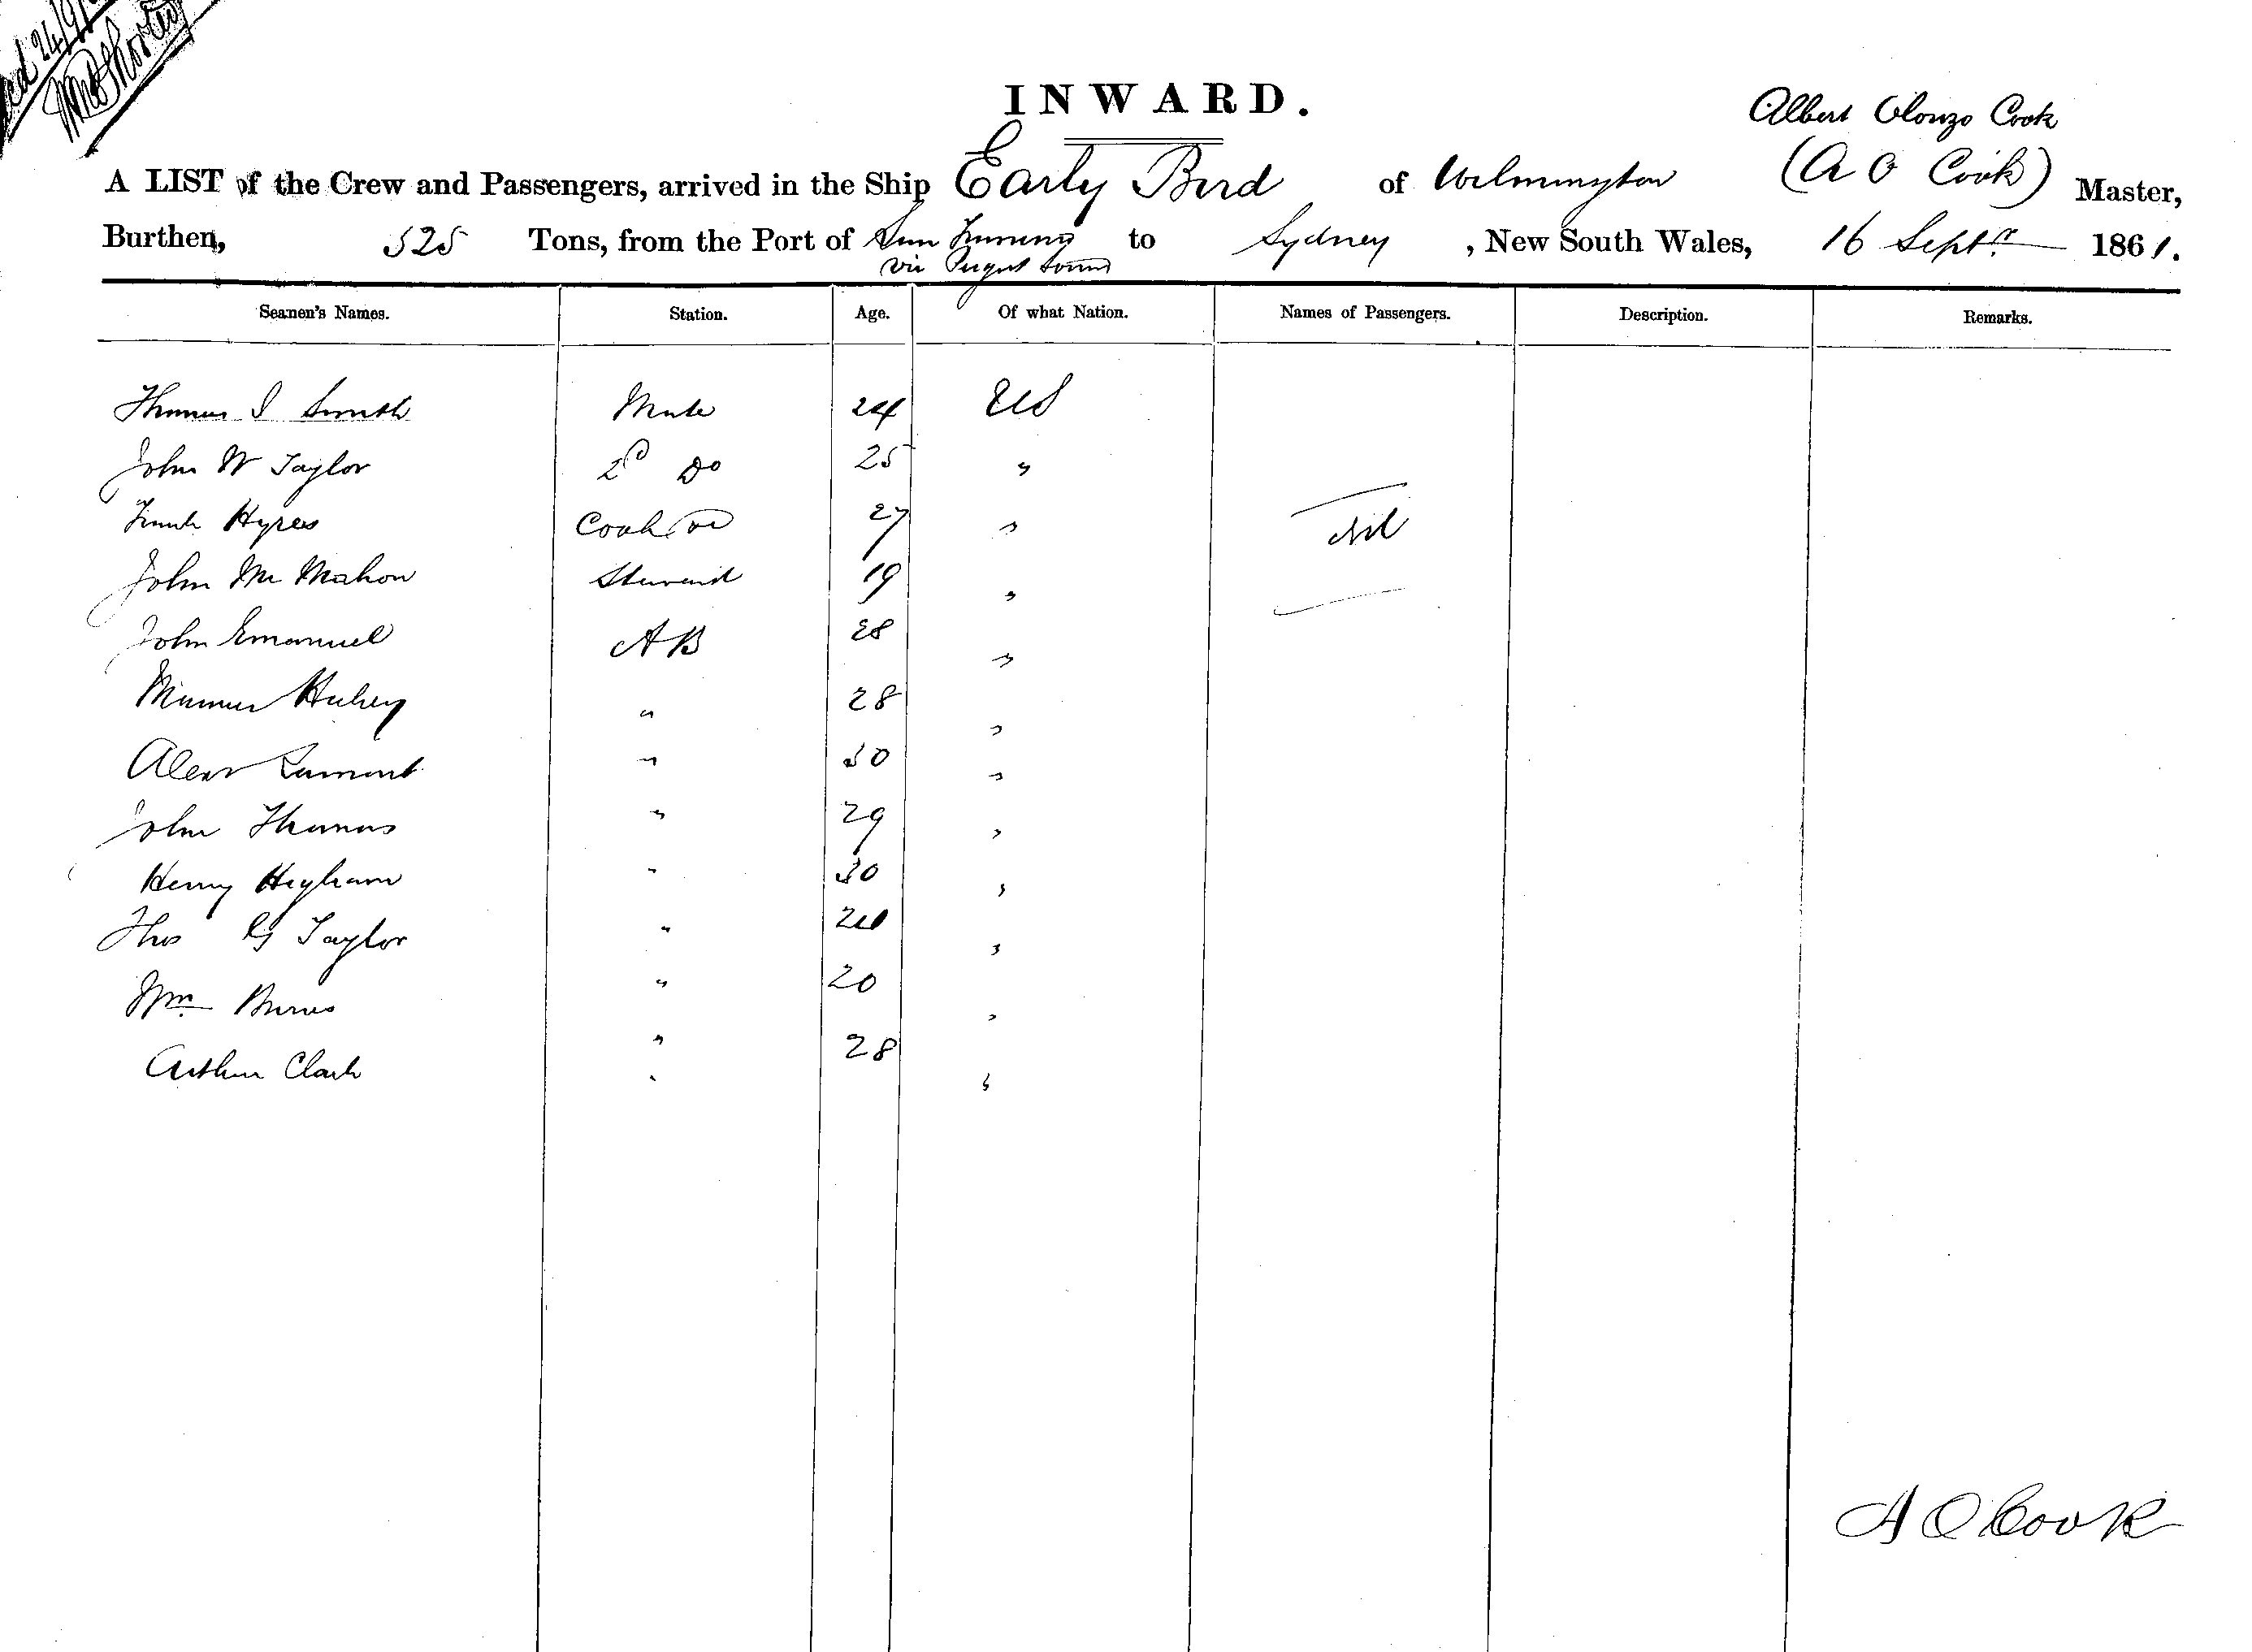 INWARD.
Albert Olonzo Cook
A LIST of the Crew and Passengers, arrived in the Ship Early Bird of Wilmington (A O Cook) Master,
Burthen, 525 Tons, from the Port of to Sydney, New South Wales, 16 Septr. 1861.
via Puget Sound
Seamen's Names. Station. Age. Of what Nation. Names of Passengers. Description. Remarks.
Thomas I Smith Mate 24 US
John W Taylor 2d Do 25 "
Frank Hyres Cook 27 " Nil
John Mc Mahon Steward 19 "
John Emanuel AB 28 "
" 28 "
Alexr Lamont " 30 "
John Thomas " 29 "
Henry Higham " 30 "
Thos G Taylor " "
Wm Burns " 20 "
Arthur Clark " 28 "
A O Cook